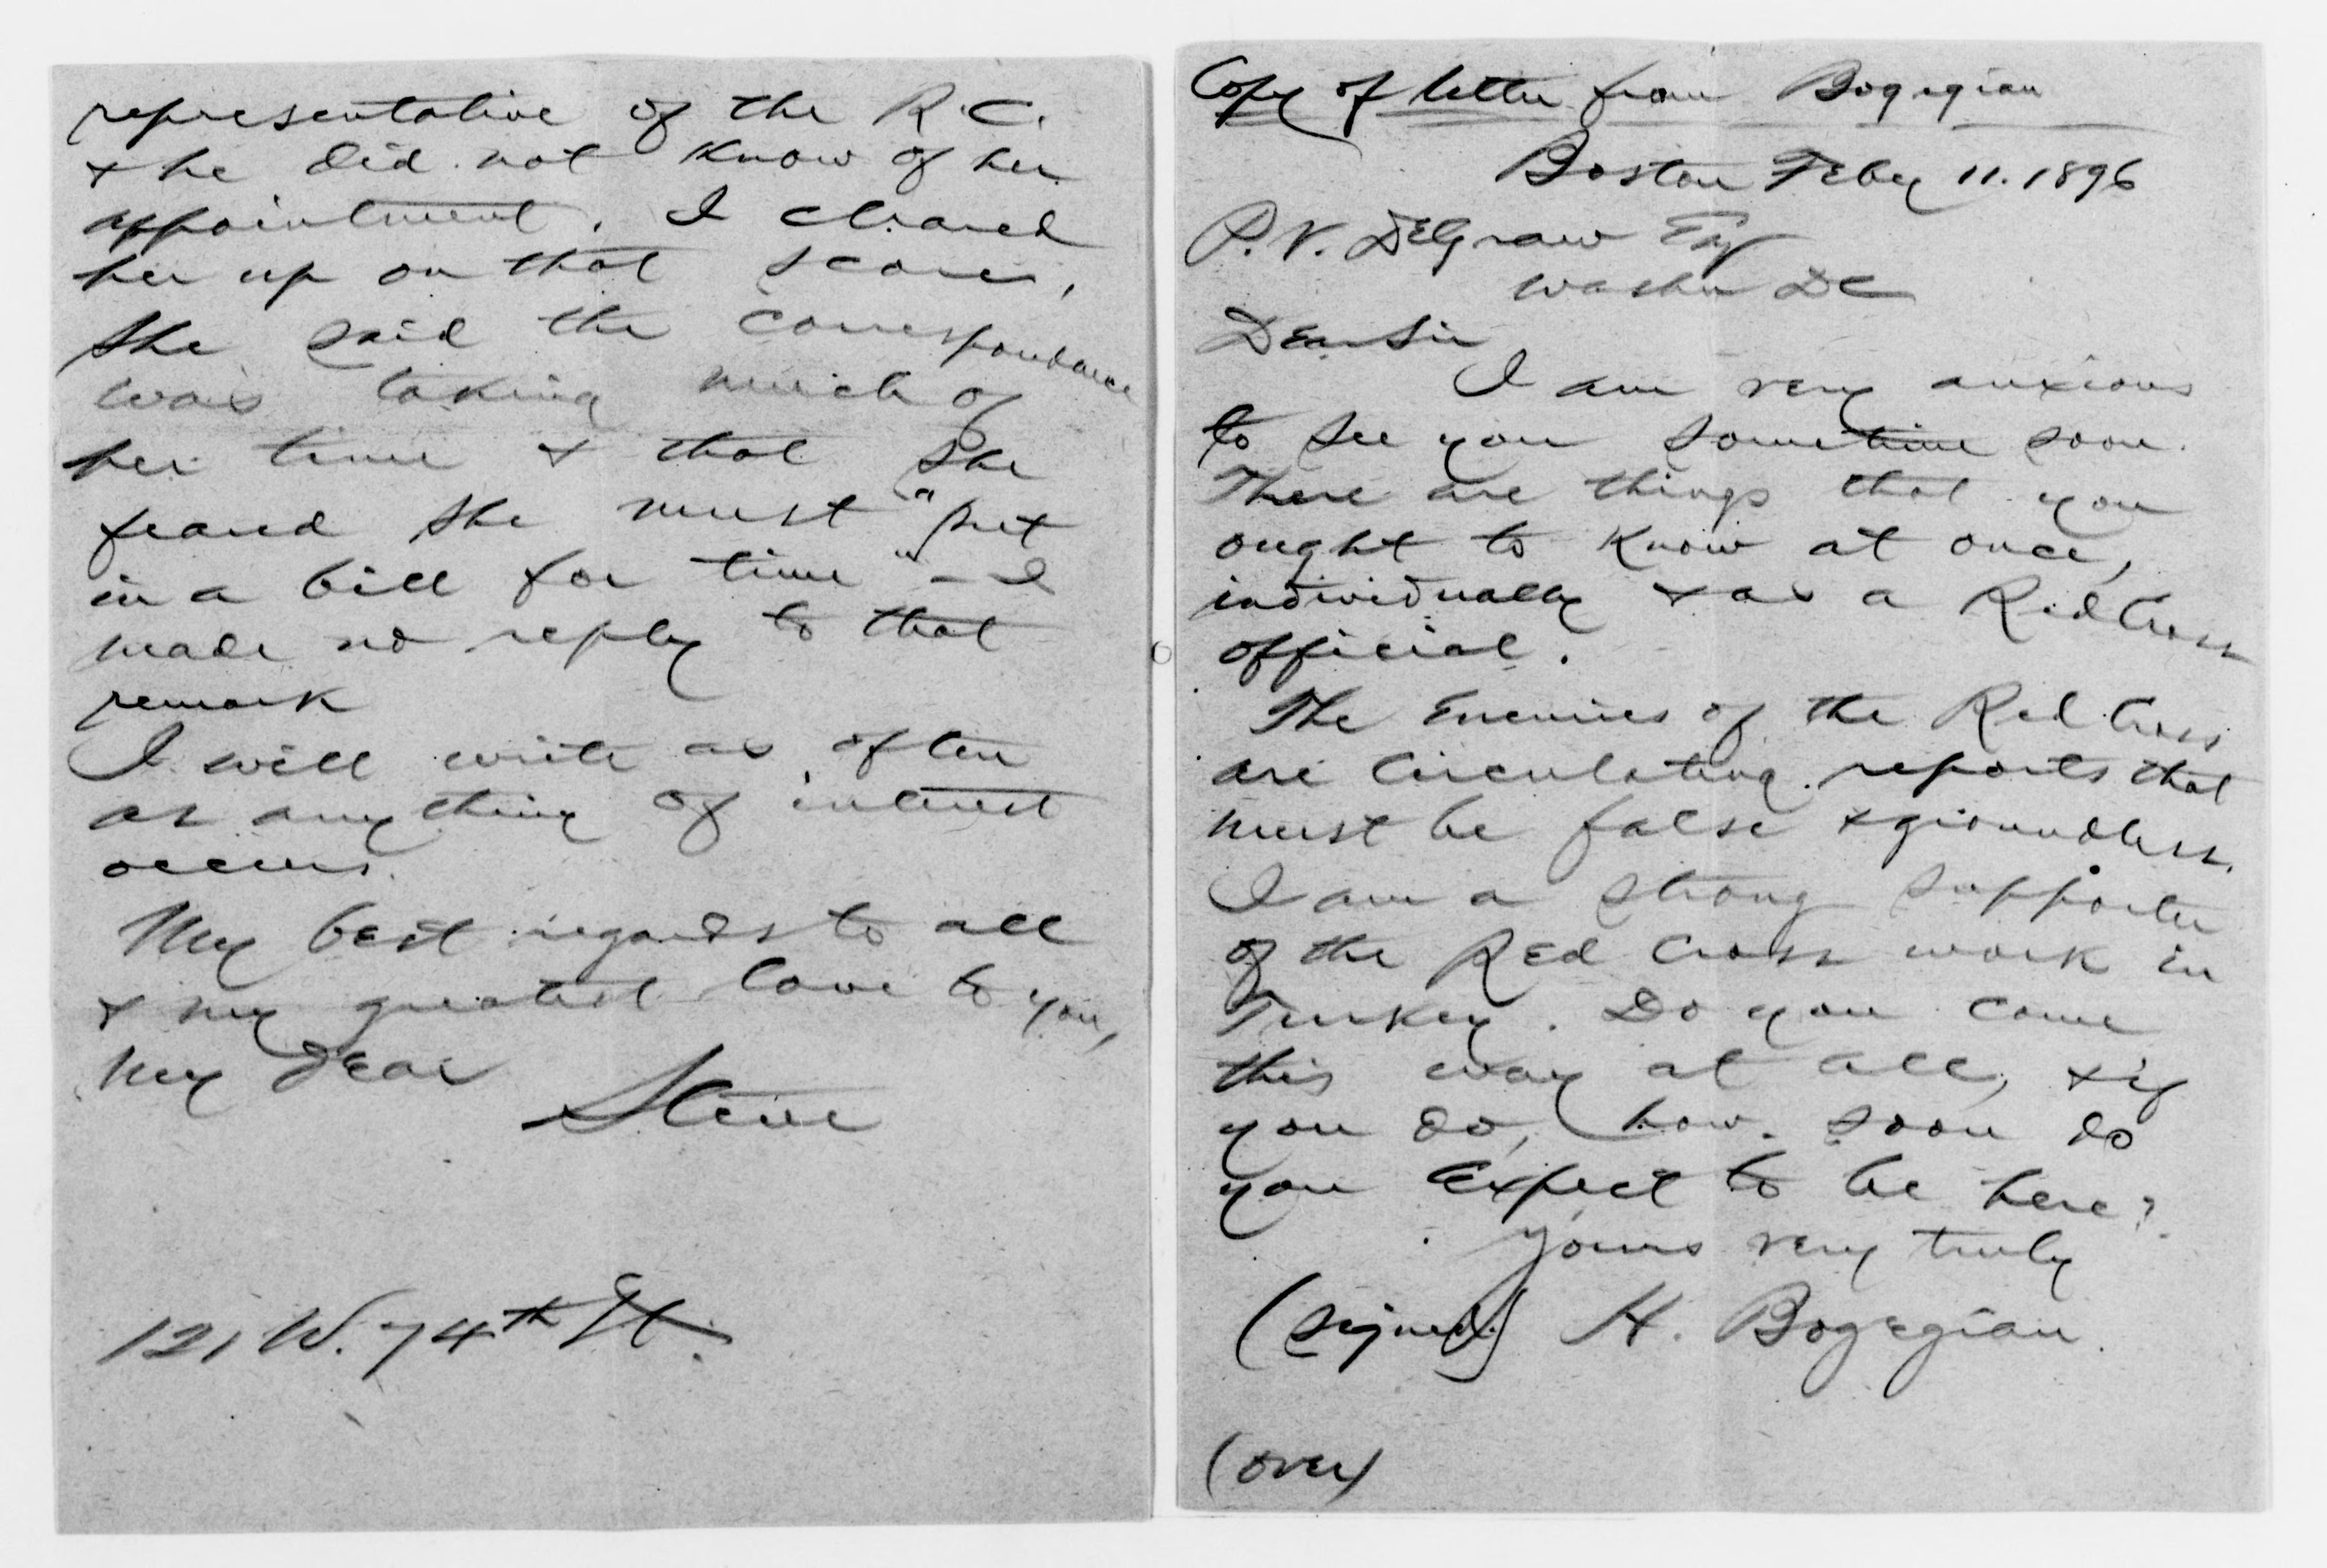 representative of the R.C.
& he did not know of her
appointment. I cleared
her up on that score,
She said the correspondance
was taking much of
her time & that she
feared she must "put
in a bill for time" - I
made no reply to that
remark
I will write as often
as any thing of interest
occurs.
My best regards to all
& my greatest love to you,
my dear
Steve
121 W. 74th St.
Copy of letter from Bogegian
Boston Feby 11. 1896
P. V. DeGraw Esq
Washn DC
Dear Sir
I am very anxious
to see you sometime soon.
There are things that you
ought to know at once,
individually & as a Red Cross
official.
The Enemies of the Red Cross
are circulating reports that
must be false & groundless.
I am a strong supporter
of the Red Cross work in
Turkey. Do you come
this way at all, & if
you do, how soon do
you Expect to be here?
Yours very truly
(signed) H. Bogegian.
(over)